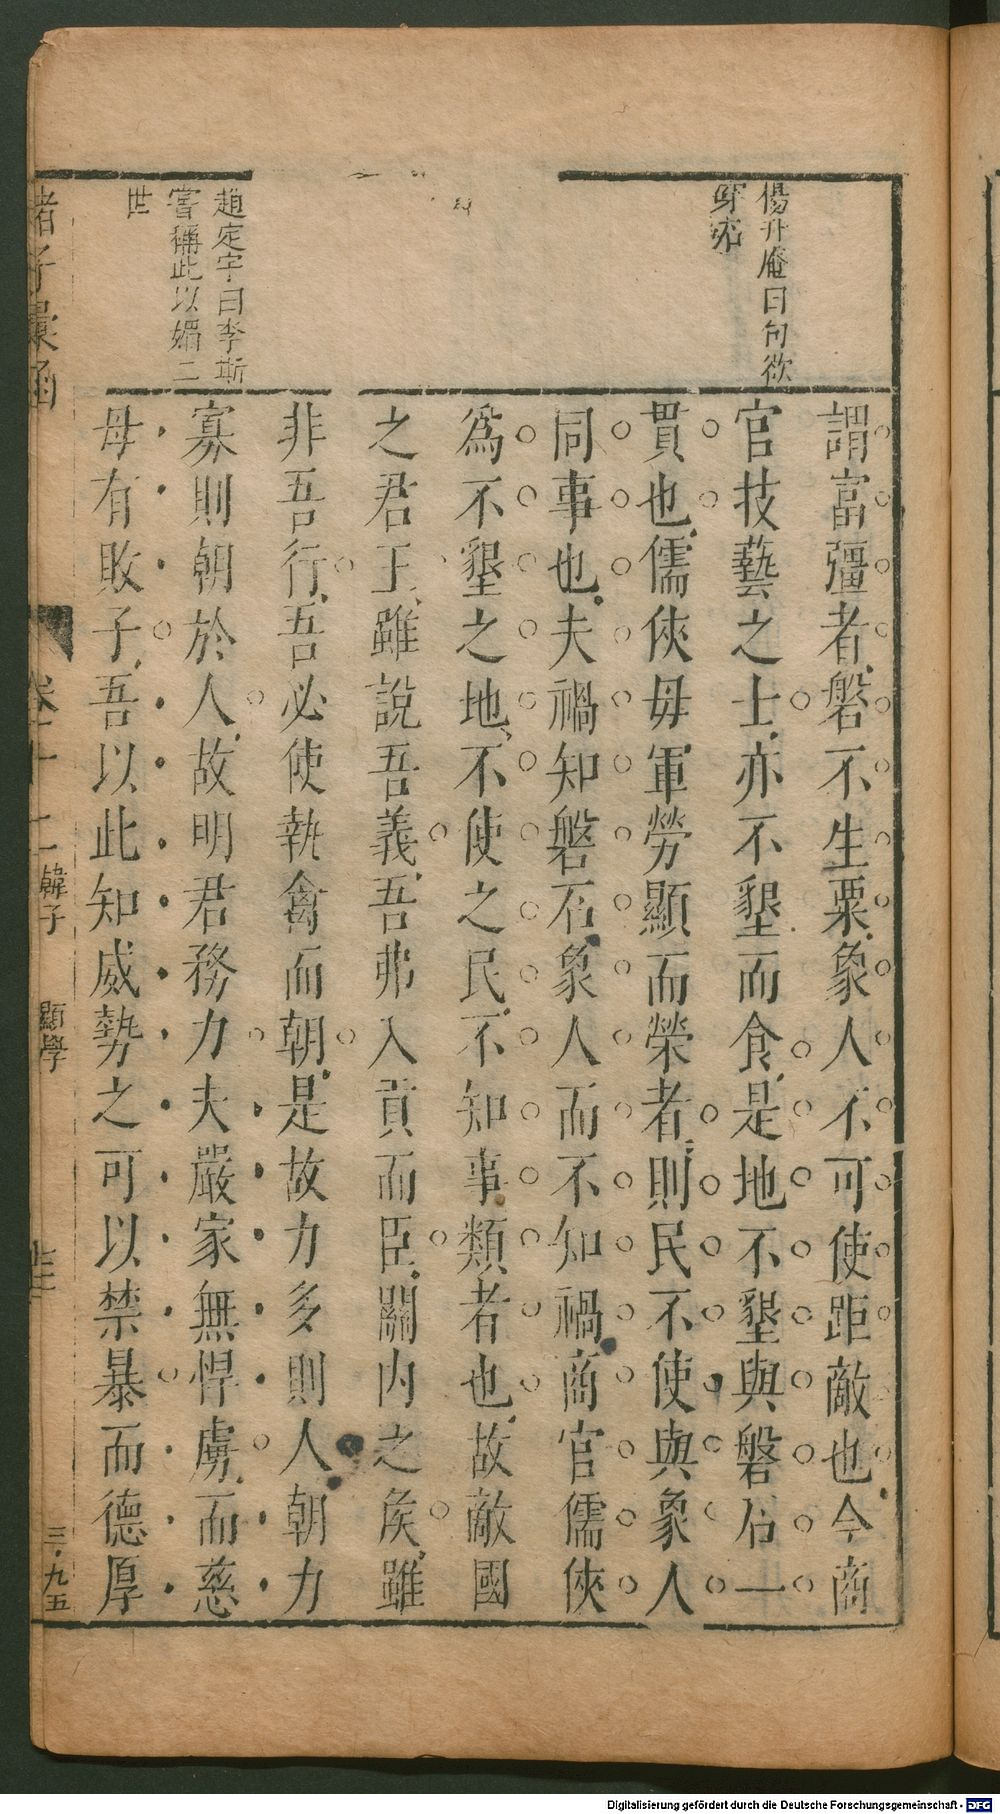 楊升庵曰句欲
穿石
趙定宇曰李斯
嘗稱此以媚二
世
謂富彊者磐不生粟象人不可使距敵也今商
官技藝之士亦不墾而食是地不墾與磐石一
貫也儒俠毋軍勞顯而榮者則民不使與象人
同事也夫禍知磐石象人而不知禍商官儒俠
為不墾之地不使之民不知事類者也故敵國
之君王雖說吾義吾弗入貢而臣關內之矦雖
非吾行吾必使執禽而朝是故力多則人朝力
寡則朝於人故明君務力夫嚴家無悍虜而慈
母有敗子吾以此知威勢之可以禁暴而德厚
諸子彙函
卷十二
韓子
顯學
三·九五
Digitalisierung gefördert durch die Deutsche Forschungsgemeinschaft - DFG